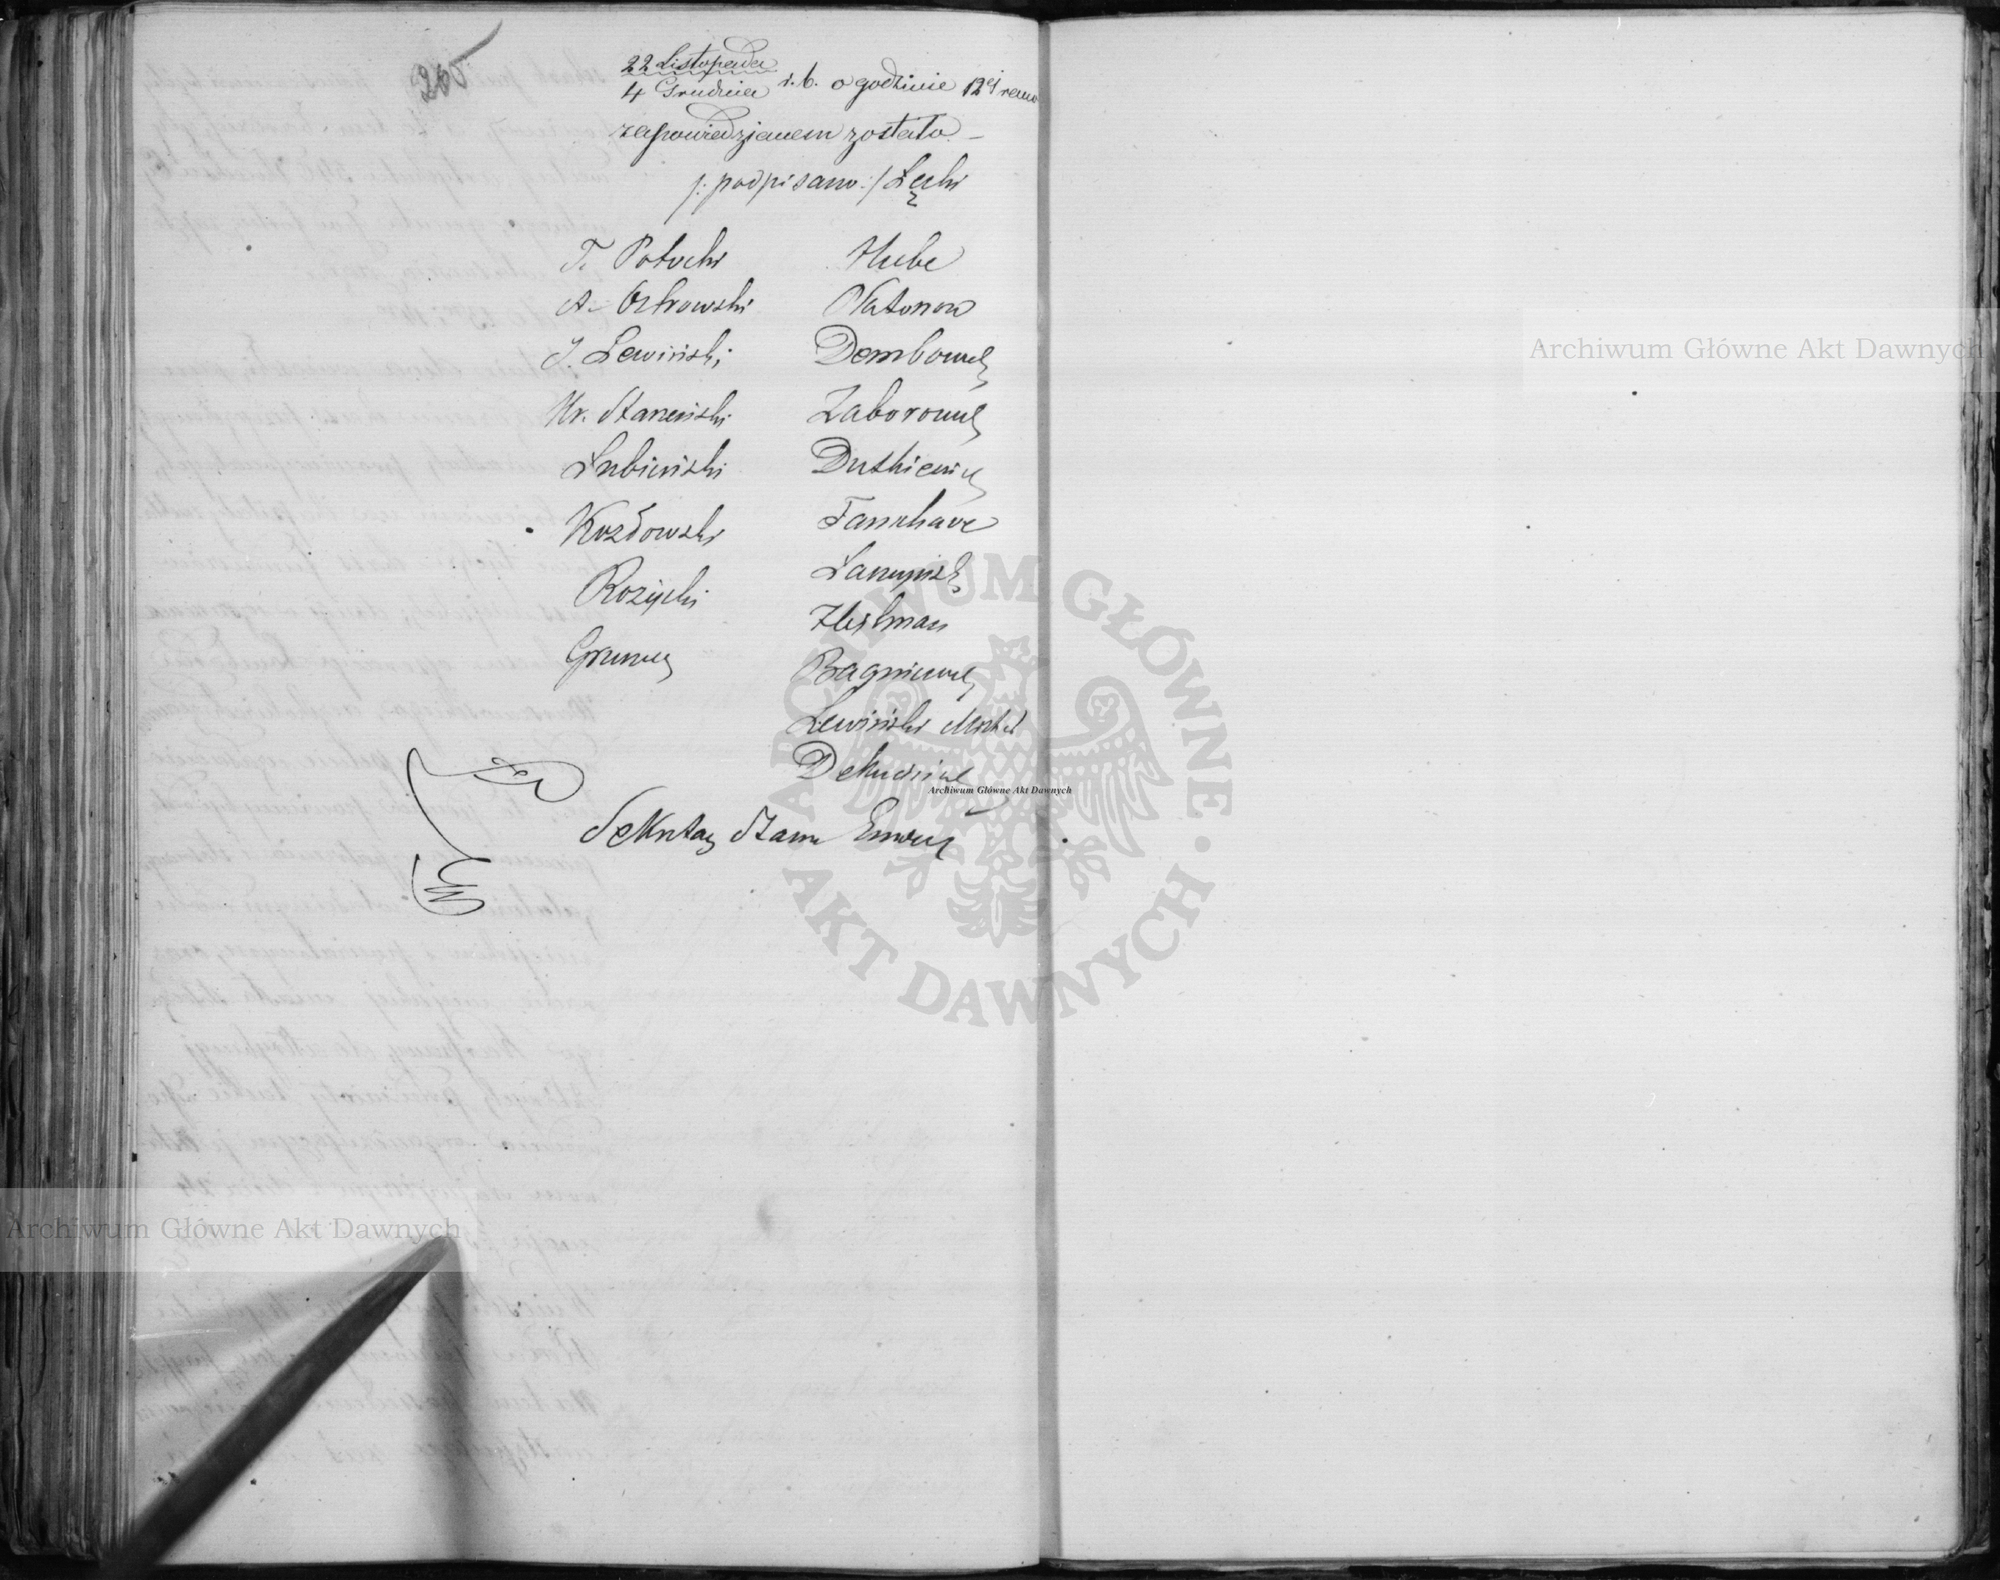 265
22 Listopada
4 Grudnia r. b. o godzinie 12ej rano
zapowiedzianem zostało –
/: podpisano :/ Łęski
T. Potocki Hube
A. Ostrowski Natonson
J. Lewiński Dembowsk
Hr. Starzeński Zaborowsk
Łubieński Dutkiewicz
Kozłowski Fanshave
Rożycki Łaszczyńsk
Hejlman
Gruner
Bagniewsk
Lewiński
Dekuciński
Sekretarz Stanu Enoch
Archiwum Główne Akt Dawnych
Archiwum Główne Akt Dawnych
Archiwum Główne Akt Dawnych
ARCHIWUM GŁÓWNE AKT DAWNYCH